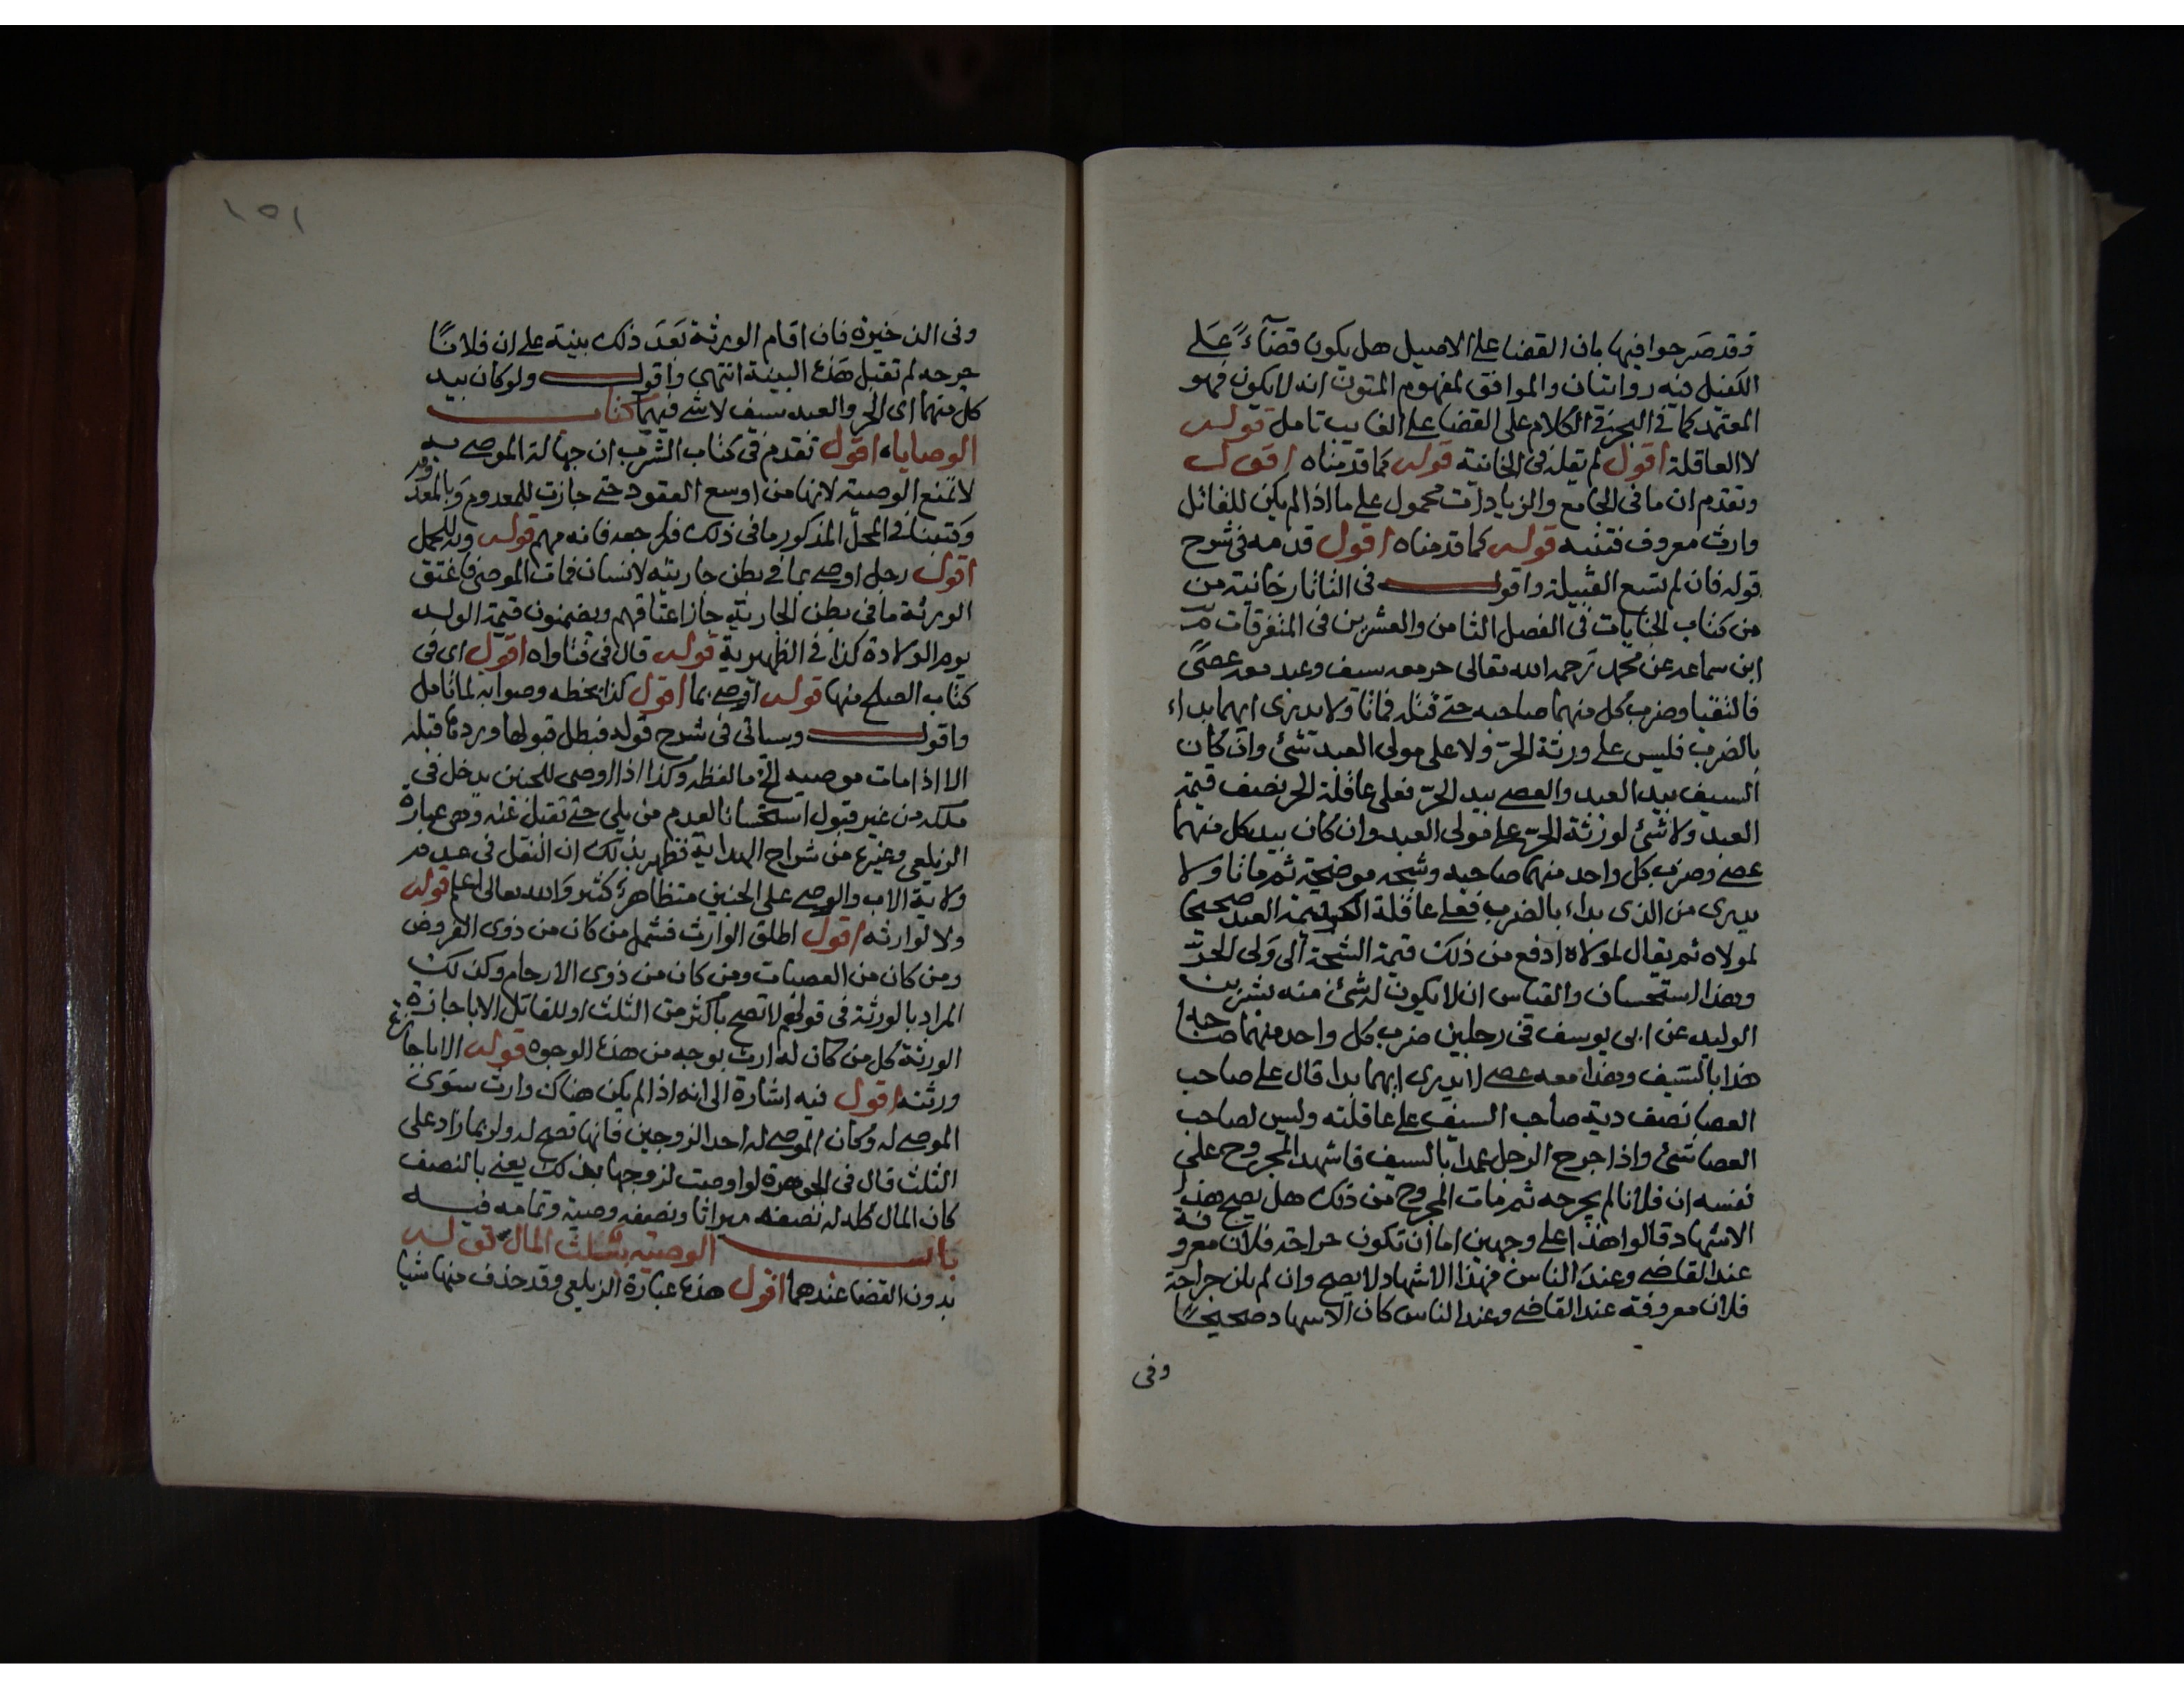 وقد صرحوا فيها بان القضا على الاصيل هل يكون قضاءً على
الكفيل فيه روايتان والموافق لمفهوم المتون انه لا يكون فهو
المعتمد كما فى البحر فى الكلام على القضا على الغايب تامل قوله
لا العاقلة اقول لم يقله فى الخانية قوله كما قدمناه اقول
وتقدم ان ما فى الجامع والزيادات محمول على ما اذا لم يكن للقاتل
وارث معروف فتنبه قوله كما قدمناه اقول قدمه فى شرح
قوله فان لم تتسع القبيلة واقول فى التاتارخانية من
من كتاب الجنايات فى الفصل الثامن والعشرين فى المتفرقات
ابن سماعه عن محمد رحمه الله تعالى حر معه سيف وعبد معه عصىً
فالتقيا وضرب كل منهما صاحبه حتى قتله فماتا ولا يدرى ايهما بداء
بالضرب فليس على ورثة الحرّ ولا على مولى العبد شئ وان كان
السيف بيد العبد والعصى بيد الحرّ فعلى عاقلة الحر نصف قيمة
العبد ولا شئ لورثة الحرّ على مولى العبد وان كان بيد كل منهما
عصى وضرب كل واحد منهما صاحبه وشجه موضحة ثم ماتا ولا
يدرى من الذى بداء بالضرب فعلى عاقلة الحر قيمة العبد صحيحا
لمولاه ثم يقال لمولاه ادفع من ذلك قيمة الشجة الى ولى الحرّ
وهذا استحسان والقياس ان لا يكون له شئ منه بشر بن
الوليد عن ابى يوسف فى رجلين ضرب كل واحد منهما صاحبه
هذا بالسيف وهذا معه عصى لا يدرى ايهما بدا قال على صاحب
العصا نصف دية صاحب السيف على عاقلته وليس لصاحب
العصا شئ واذا جرح الرجل عمدا بالسيف فاشهد المجروح على
نفسه ان فلانا لم يجرحه ثم مات المجروح من ذلك هل يصح هذا
الاشهاد قالوا هذا على وجهين اما ان تكون جراحة فلان معروفة
عند القاضى وعند الناس فهذا الاشهاد لا يصح وان لم يكن جراحة
فلان معروفة عند القاضى وعند الناس كان الاشهاد صحيحاً
وفى
١٥١
وفى الذخيرة فان اقام الورثة بعد ذلك بينة على ان فلاناً
جرحه لم تقبل هذه البينة انتهى واقول ولو كان بيد
كل منهما اى الحر والعبد سيف لا شى فيهما كتاب
الوصايا، اقول تقدم فى كتاب الشرب ان جهالة الموصى به
لا تمنع الوصية لانها من اوسع العقود حتى جازت للمعدوم وبالمعدوم
وكتبنا فى المحل المذكور ما فى ذلك فلراجعه فانه مهم قوله وللحمل
اقول رجل اوصى بما فى بطن جاريته لانسان فمات الموصى فاعتق
الورثة ما فى بطن الجارية جاز اعتاقهم ويضمنون قيمة الولد
يوم الولادة كذا فى الظهيرية قوله قال فى فتاواه اقول اى فى
كتاب الصلح منها قوله اوصى بما اقول كذا بخطه وصوابه لما تامل
واقول وسياتى فى شرح قوله فبطل قبولها وردها قبله
الا اذا مات موصيه الخ ما لفظه وكذا اذا اوصى للجنين يدخل فى
ملكه من غير قبول استحسانا لعدم من يلى حتى تقبل عنه وهى عبارة
الزيلعى وغيره من شراح الهداية فظهر بذلك ان النقل فى عدم
ولاية الاب والوصى على الجنين متظاهرة كثير والله تعالى اعلم قوله
ولا لوارثه اقول اطلق الوارث فشمل من كان من ذوى الفروض
ومن كان من العصبات ومن كان من ذوى الارحام وكذلك
المراد بالورثة فى قولهم لا تصح باكثر من الثلث او للقاتل الا باجازة
الورثة كل من كان له ارث بوجه من هذه الوجوه قوله الا باجازة
ورثته اقول فيه اشارة الى انه اذا لم يكن هناك وارث سوى
الموصى له وكان الموصى له احد الزوجين فانها تصح له ولو بما زاد على
الثلث قال فى الجوهرة لو اوصت لزوجها بذلك يعنى بالنصف
كان المال كله له نصفه ميراثا ونصفه وصية وتمامه فيه
باب الوصية بثلث المال قوله
بدون القضا عندهما اقول هذه عبارة الزيلعى وقد حذف منها شيا